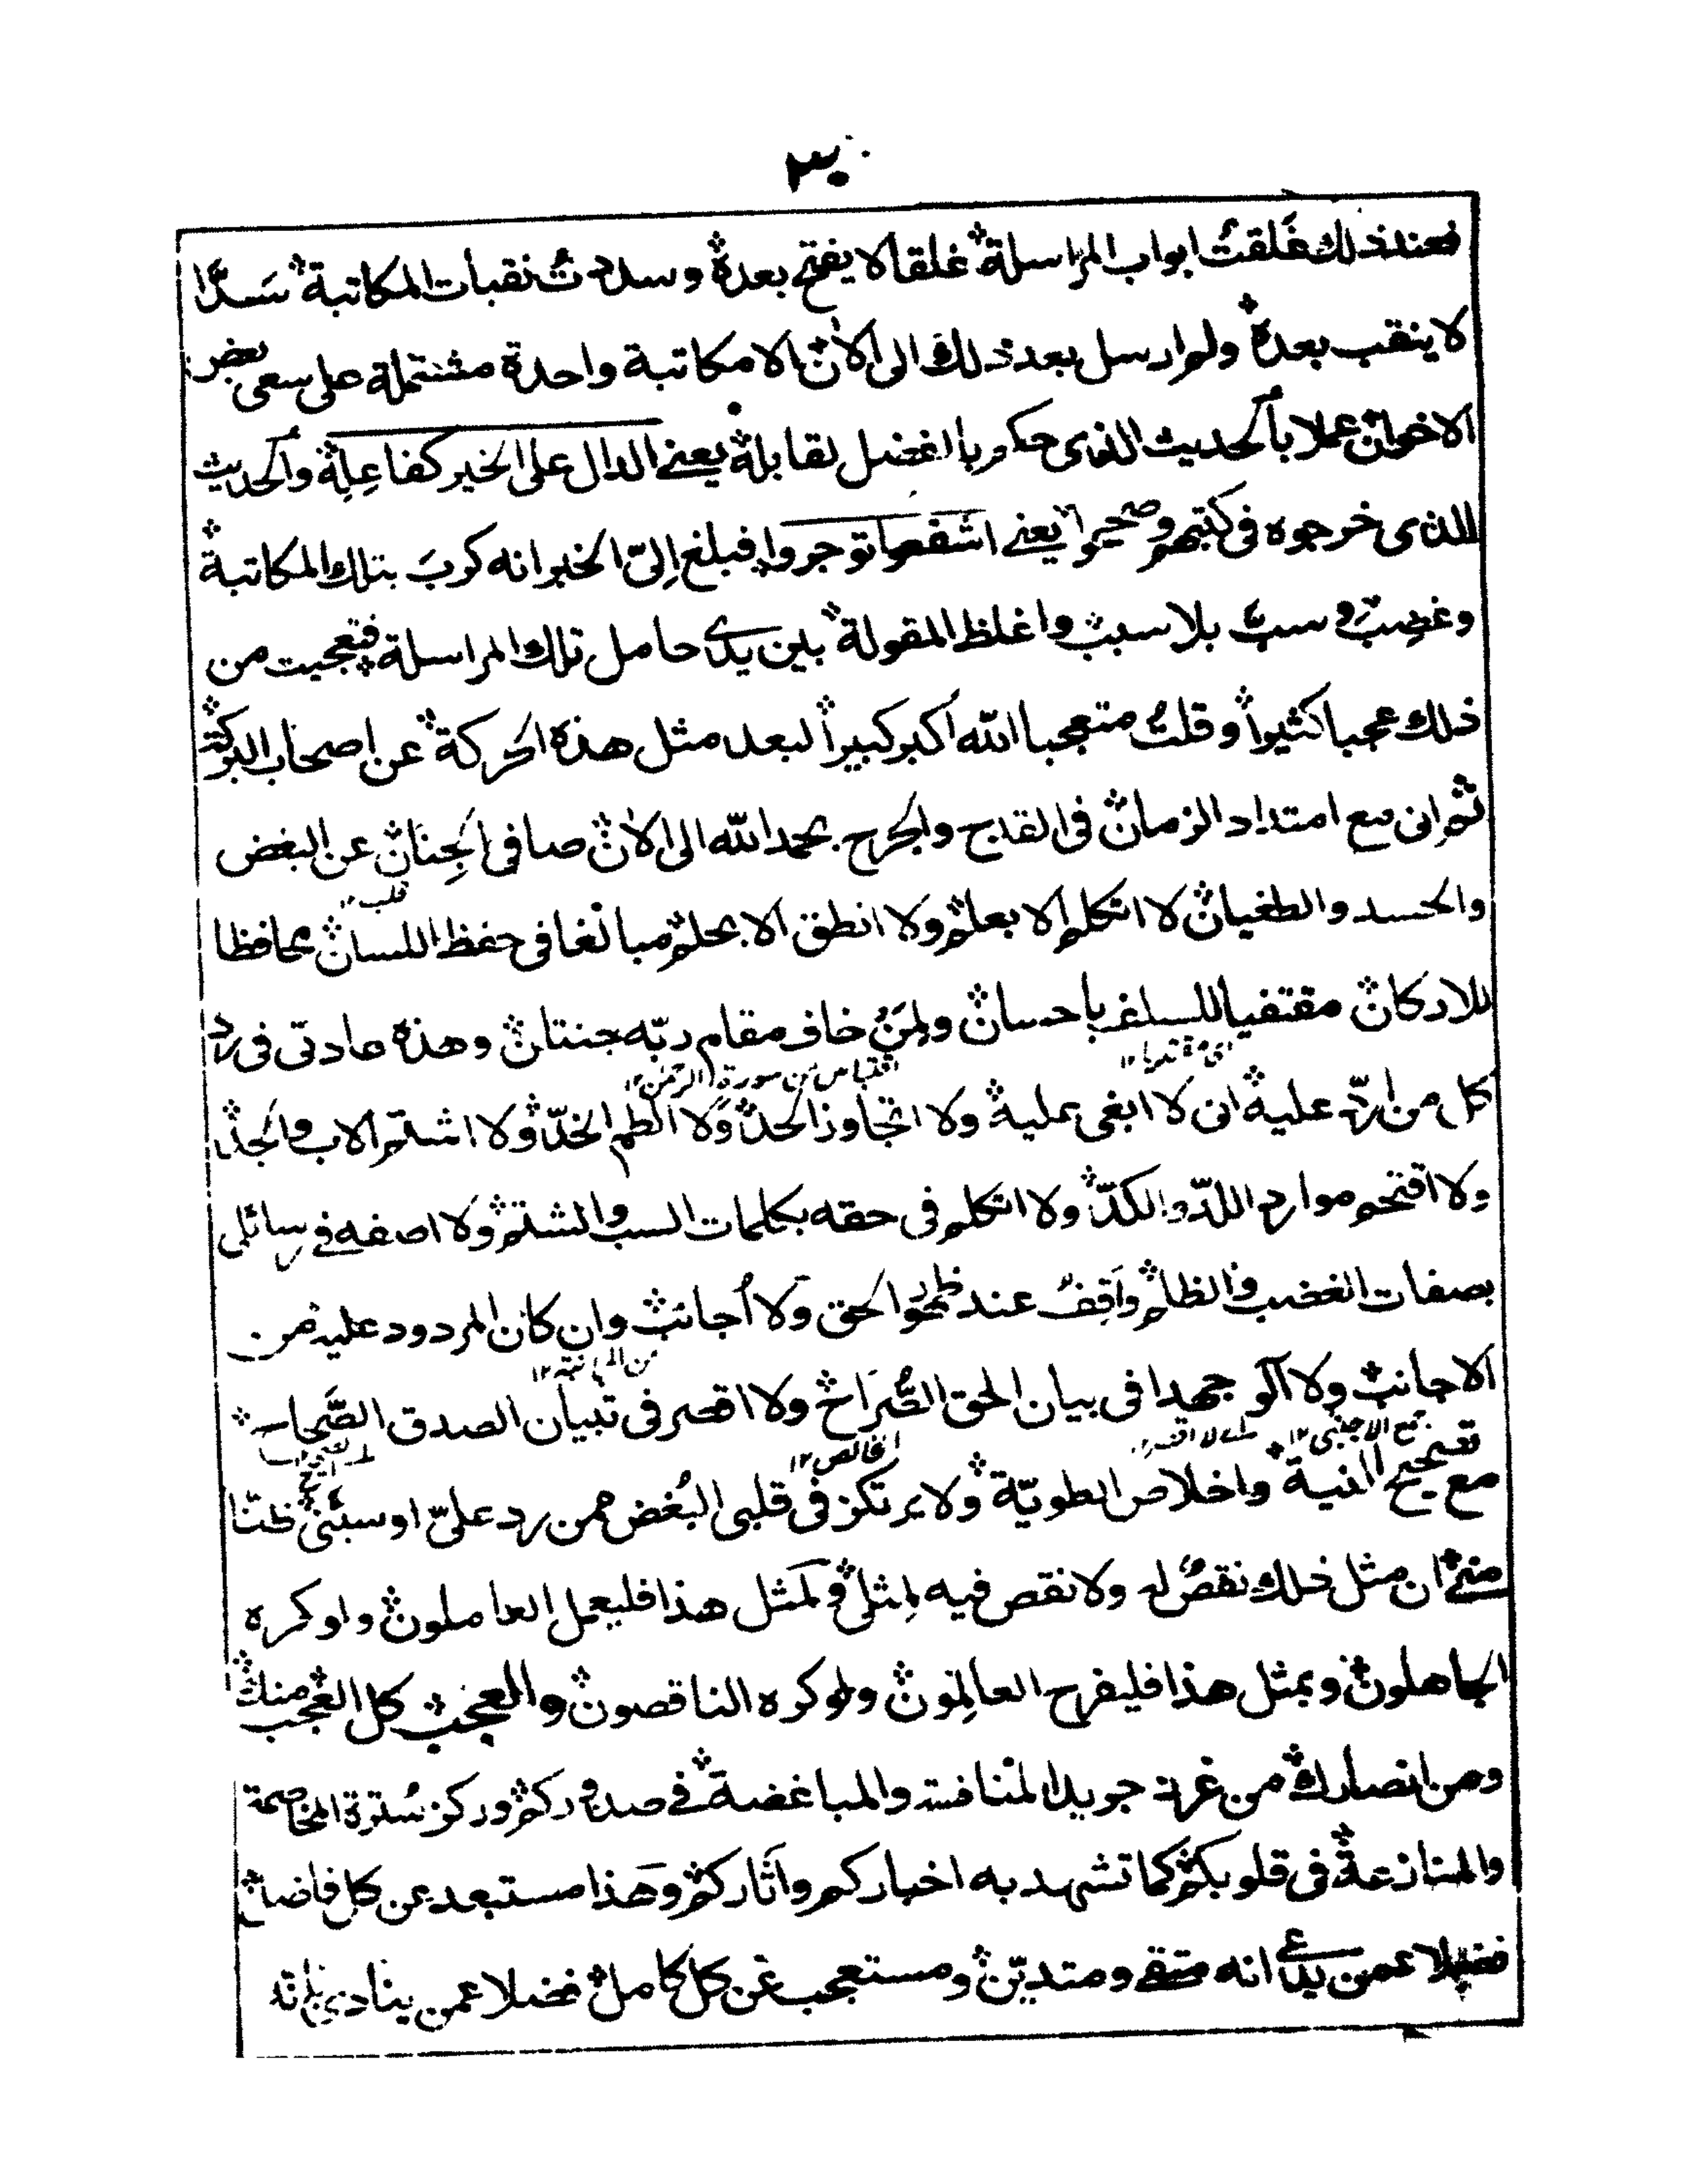 ٣٠
فعند ذلك غَلقتُ ابواب المراسلة غلقا لا يفتح بعدة وسددتُ نقبات المكاتبة سَدًّا
لا ينقب بعدة ولم ارسل بعد ذلك الى الاٰن الا مكاتبة واحدة مشتملة على سعى بعض
الاخوان عملا بالحديث الذى حكم بالفضل لقابله يعنے الدال على الخير كفاعِلِه والحديث
الذى خرجوه فى كتبهم وصححوا يعنے اشفعوا توجروا فبلغ اِلىّ الخبر انه كربَ بتلك المكاتبة
وغضِبَ و سبَّ بلا سبب واغلظ المقولة بين يدى حامل تلك المراسلة فتعجبت من
ذلك عجبا كثيرا وقلتُ متعجبا الله اكبر كبيرا لبعد مثل هذه الحركة عن اصحاب البركة
ثم انى مع امتداد الزمان فى القدح والجرح بحمد الله الى الاٰن صافى الجِنان عن البغض
والحسد والطغيان لا اتكلم الا بعلم ولا انطق الا بحلم مبالغا فى حفظ اللسان محافظا
قلب ١٢
للاركان مقتفيا للسلف باحسان ولِمَنْ خاف مقام ربّه جنتان وهذه عادتى فى رد
اى مقتديا ١٢
اقتباس من سورة الرحمٰن ١٢
كل من اردّ عليه انى لا ابغى عليه ولا اتجاوز الحدّ وَلا الطم الخدّ ولا اشتم الاب والجد
ولا اقتحم موارد اللدّ والكدّ ولا اتكلم فى حقه بكلمات السب والشتم ولا اصفه فے رسائلى
بصفات الغضب والظلم واَقِفُ عند ظهور الحق وَلا اُجانب وان كان المردود عليه من
من المجانبة ١٢
الاجانب ولا آلو جهدا فى بيان الحق الصُّرَاح ولا اقصر فى تبيان الصدق الصَّحاح
جمع الاجنبى ١٢
اے لا اقصر ١٢
الخالص ١٢
مع تصحيح النية واخلاص الطويّة ولا يرتكز فى قلبى البُغض ممن رد علىّ او سبَّنى ظنّا
منى ان مثل ذلك نقصٌ له ولا نقص فيه لِمثلى ولَمثل هذا فليعمل العاملون ولو كره
الجاهلون وبمثل هذا فليفرح العالِمون ولو كره الناقصون والعجب كل العجب منك
ومن انصارك من غرز جريد المنافسة والمباغضة فے صدوركم وركز سُترة المخاصمة
والمنازعة فى قلوبكم كما تشهد به اخباركم واٰثاركم وهَذا مستبعد عن كل فاضل
فضلا عمن يدعى انه متقے ومتديّن ومستعجب عن كل كامل فضلا عمن ينادى بانّه